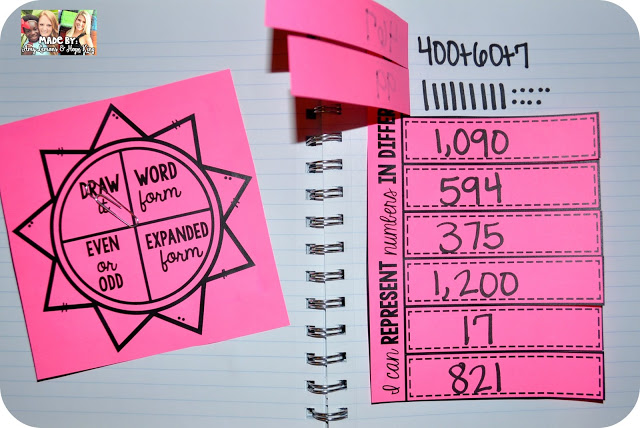 MADE BY:
Amy Lemons & Hope King
DRAW it
WORD form
EVEN or ODD
EXPANDED form
400+60+7
I can REPRESENT numbers IN DIFFER
1,090
594
375
1,200
17
821